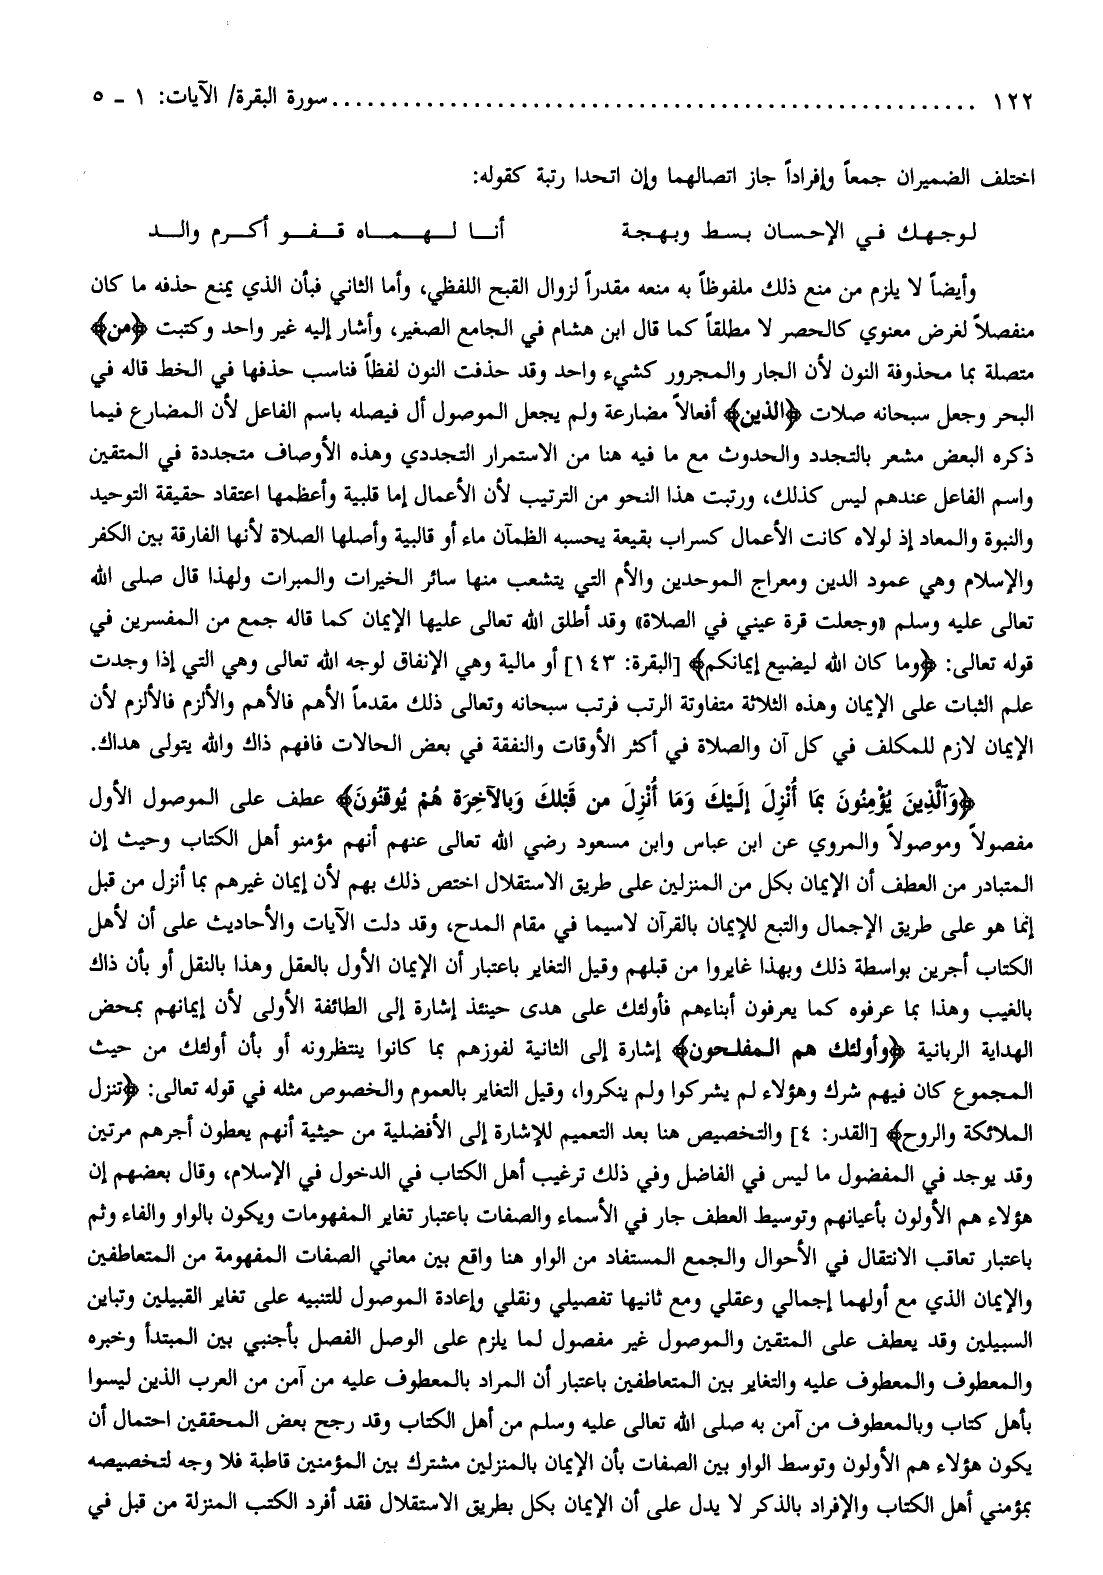 ١٢٢ ...................................................... سورة البقرة/ الآيات: ١ ـ ٥
اختلف الضميران جمعاً وإفراداً جاز اتصالهما وإن اتحدا رتبة كقوله:
لوجهك في الإحسان بسط وبهجة أنا لهماه قفو أكرم والد
وأيضاً لا يلزم من منع ذلك ملفوظاً به منعه مقدراً لزوال القبح اللفظي، وأما الثاني فبأن الذي يمنع حذفه ما كان
منفصلاً لغرض معنوي كالحصر لا مطلقاً كما قال ابن هشام في الجامع الصغير، وأشار إليه غير واحد وكتبت ﴿من﴾
متصلة بما محذوفة النون لأن الجار والمجرور كشيء واحد وقد حذفت النون لفظاً فناسب حذفها في الخط قاله في
البحر وجعل سبحانه صلات ﴿الذين﴾ أفعالاً مضارعة ولم يجعل الموصول أل فيصله باسم الفاعل لأن المضارع فيما
ذكره البعض مشعر بالتجدد والحدوث مع ما فيه هنا من الاستمرار التجددي وهذه الأوصاف متجددة في المتقين
واسم الفاعل عندهم ليس كذلك، ورتبت هذا النحو من الترتيب لأن الأعمال إما قلبية وأعظمها اعتقاد حقيقة التوحيد
والنبوة والمعاد إذ لولاه كانت الأعمال كسراب بقيعة يحسبه الظمآن ماء أو قالبية وأصلها الصلاة لأنها الفارقة بين الكفر
والإسلام وهي عمود الدين ومعراج الموحدين والأم التي يتشعب منها سائر الخيرات والمبرات ولهذا قال صلى الله
تعالى عليه وسلم «وجعلت قرة عيني في الصلاة» وقد أطلق الله تعالى عليها الإيمان كما قاله جمع من المفسرين في
قوله تعالى: ﴿وما كان الله ليضيع إيمانكم﴾ [البقرة: ١٤٣] أو مالية وهي الإنفاق لوجه الله تعالى وهي التي إذا وجدت
علم الثبات على الإيمان وهذه الثلاثة متفاوتة الرتب فرتب سبحانه وتعالى ذلك مقدماً الأهم فالأهم والألزم فالألزم لأن
الإيمان لازم للمكلف في كل آن والصلاة في أكثر الأوقات والنفقة في بعض الحالات فافهم ذاك والله يتولى هداك.
﴿وَٱلَّذِينَ يُؤْمِنُونَ بِمَا أُنْزِلَ إِلَيْكَ وَمَا أُنْزِلَ من قَبْلكَ وَبِالآخِرَة هُمْ يُوقنُونَ﴾ عطف على الموصول الأول
مفصولاً وموصولاً والمروي عن ابن عباس وابن مسعود رضي الله تعالى عنهم أنهم مؤمنو أهل الكتاب وحيث إن
المتبادر من العطف أن الإيمان بكل من المنزلين على طريق الاستقلال اختص ذلك بهم لأن إيمان غيرهم بما أنزل من قبل
إنما هو على طريق الإجمال والتبع للإيمان بالقرآن لاسيما في مقام المدح، وقد دلت الآيات والأحاديث على أن لأهل
الكتاب أجرين بواسطة ذلك وبهذا غايروا من قبلهم وقيل التغاير باعتبار أن الإيمان الأول بالعقل وهذا بالنقل أو بأن ذاك
بالغيب وهذا بما عرفوه كما يعرفون أبناءهم فأولئك على هدى حينئذ إشارة إلى الطائفة الأولى لأن إيمانهم بمحض
الهداية الربانية ﴿وأولئك هم المفلحون﴾ إشارة إلى الثانية لفوزهم بما كانوا ينتظرونه أو بأن أولئك من حيث
المجموع كان فيهم شرك وهؤلاء لم يشركوا ولم ينكروا، وقيل التغاير بالعموم والخصوص مثله في قوله تعالى: ﴿تنزل
الملائكة والروح﴾ [القدر: ٤] والتخصيص هنا بعد التعميم للإشارة إلى الأفضلية من حيثية أنهم يعطون أجرهم مرتين
وقد يوجد في المفضول ما ليس في الفاضل وفي ذلك ترغيب أهل الكتاب في الدخول في الإسلام، وقال بعضهم إن
هؤلاء هم الأولون بأعيانهم وتوسيط العطف جار في الأسماء والصفات باعتبار تغاير المفهومات ويكون بالواو والفاء وثم
باعتبار تعاقب الانتقال في الأحوال والجمع المستفاد من الواو هنا واقع بين معاني الصفات المفهومة من المتعاطفين
والإيمان الذي مع أولهما إجمالي وعقلي ومع ثانيها تفصيلي ونقلي وإعادة الموصول للتنبيه على تغاير القبيلين وتباين
السبيلين وقد يعطف على المتقين والموصول غير مفصول لما يلزم على الوصل الفصل بأجنبي بين المبتدأ وخبره
والمعطوف والمعطوف عليه والتغاير بين المتعاطفين باعتبار أن المراد بالمعطوف عليه من آمن من العرب الذين ليسوا
بأهل كتاب وبالمعطوف من آمن به صلى الله تعالى عليه وسلم من أهل الكتاب وقد رجح بعض المحققين احتمال أن
يكون هؤلاء هم الأولون وتوسط الواو بين الصفات بأن الإيمان بالمنزلين مشترك بين المؤمنين قاطبة فلا وجه لتخصيصه
بمؤمني أهل الكتاب والإفراد بالذكر لا يدل على أن الإيمان بكل بطريق الاستقلال فقد أفرد الكتب المنزلة من قبل في